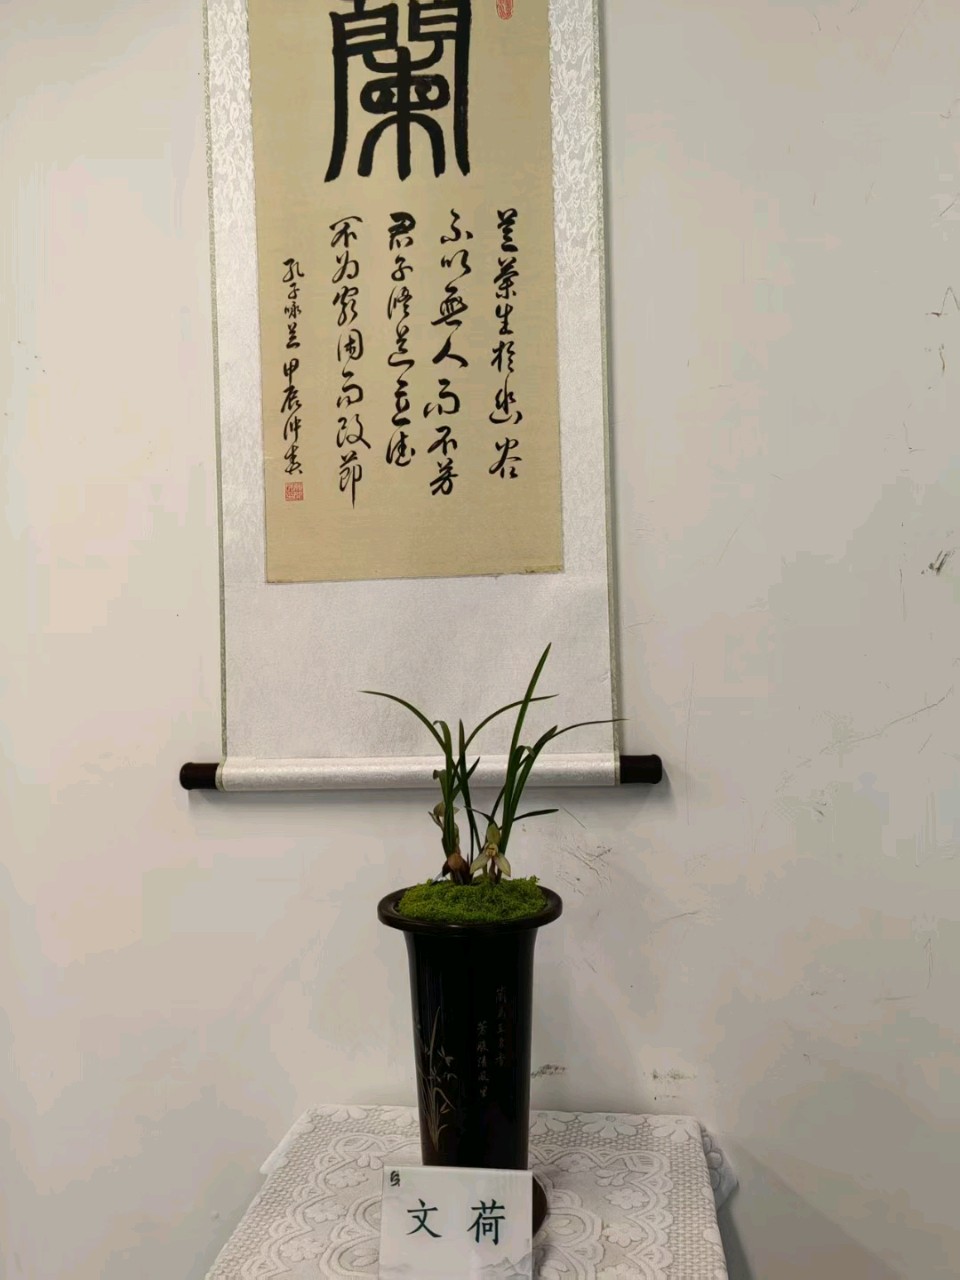 蘭
兰葉生於幽谷
不以無人而不芳
君子修道立德
不为穷困而改節
孔子咏兰 甲辰仲春
文荷